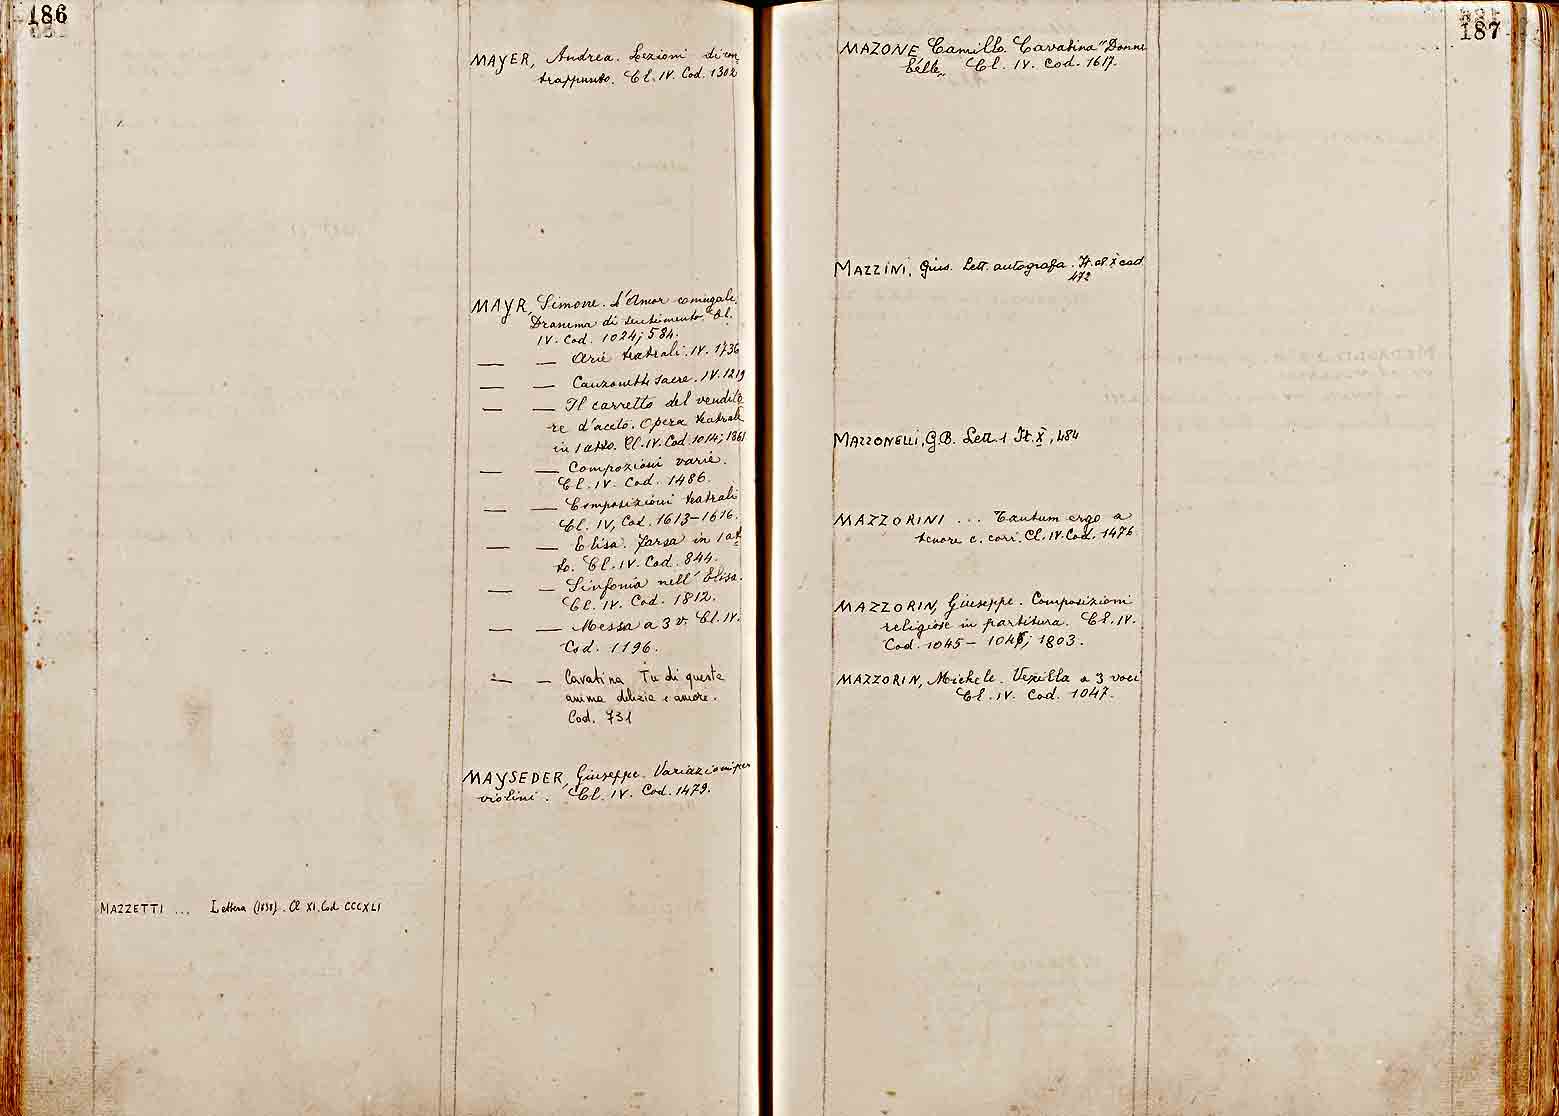 186
MAZZETTI ... Lettera (1838). Cl XI. Cod CCCXLI
MAYER, Andrea. Lezioni di con
trappunto. Cl. IV. Cod. 1302
MAYR, Simone. L'Amor coniugale.
Dramma di sentimento. Cl.
IV. Cod. 1024; 584.
— — Arie teatrali. IV. 1736
— — Canzonette sacre. IV. 1219
— — Il carretto del vendito
re d'aceto. Opera teatrale
in 1 atto. Cl. IV. Cod. 1014; 1861
— — Compozioni varie.
Cl. IV. Cod. 1486.
— — Composizioni teatrali
Cl. IV, Cod. 1613-1616.
— — Elisa. Farsa in 1 at
to. Cl. IV. Cod. 844.
— — Sinfonia nell'Elisa.
Cl. IV. Cod. 1812.
— — Messa a 3 v. Cl. IV.
Cod. 1196.
— — Cavatina Tu di questa
anima delizia e amore.
Cod. 731
MAYSEDER, Giuseppe. Variazioni per
violini. Cl. IV. Cod. 1479.
187
MAZONE Camillo. Cavatina "Donne
belle„ Cl. IV. Cod. 1617.
MAZZINI, Gius. Lett. autografa. It. cl X cod
472
MAZZONELLI, G.B. Lett. 1 It. X, 484
MAZZORINI ... Tantum ergo a
tenore c. cori. Cl. IV. Cod. 1476
MAZZORIN, Giuseppe. Composizioni
religiose in partitura. Cl. IV.
Cod. 1045 - 1046; 1803.
MAZZORIN, Michele. Vexilla a 3 voci
Cl. IV. Cod. 1047.